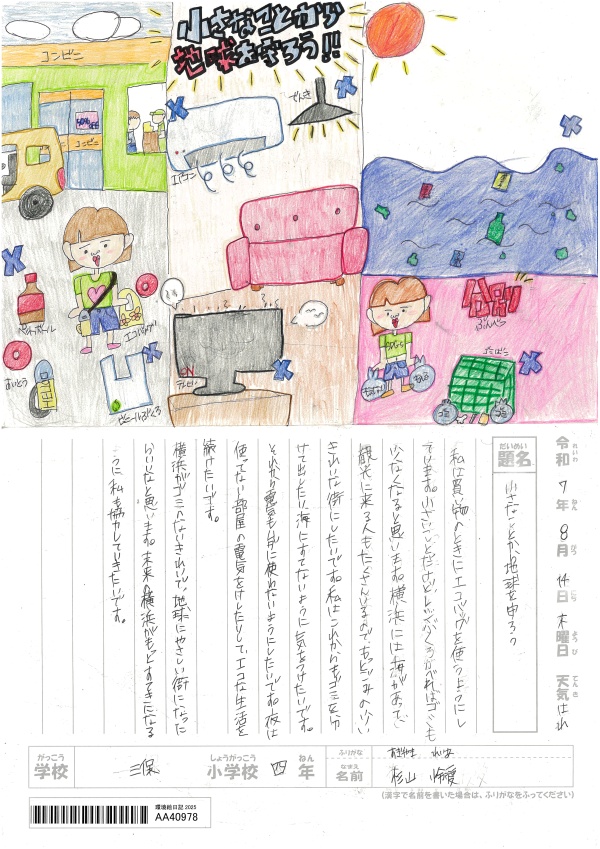 小さなことから
地球を守ろう!!
コンビニ
コンビニ
エアコン
でんき
ペットボトル
エコバッグ
ビニールぶくろ
テレビ
ON
分別
ぶんべつ
ゴミばこ
もえる
令和7年8月14日木曜日 天気 はれ
れいわ ねん がつ にち ようび てんき
だいめい
題名
小さなことから地球を守ろう
私は買い物のときにエコバッグを使うようにし
ています。小さいことだけど、レジぶくろがへればゴミも
少なくなると思います。横浜には海があって、
観光に来る人もたくさんいるので、もっとゴミの少ない
きれいな街にしたいです。私はこれからもゴミを分
けて出したり、海にすてないように気をつけたいです。
それから電気もムダに使わないようにしたいです。夜は
使ってない部屋の電気をけしたりして、エコな生活を
続けたいです。
横浜がゴミのないきれいで、地球にやさしい街になった
らいいなと思います。未来の横浜がもっとすてきになる
ように私も協力していきたいです。
がっこう
学校
三保
しょうがっこう
小学校
四
ねん
年
ふりがな
なまえ
名前
杉山
(漢字で名前を書いた場合は、ふりがなをふってください)
環境絵日記 2025
AA40978